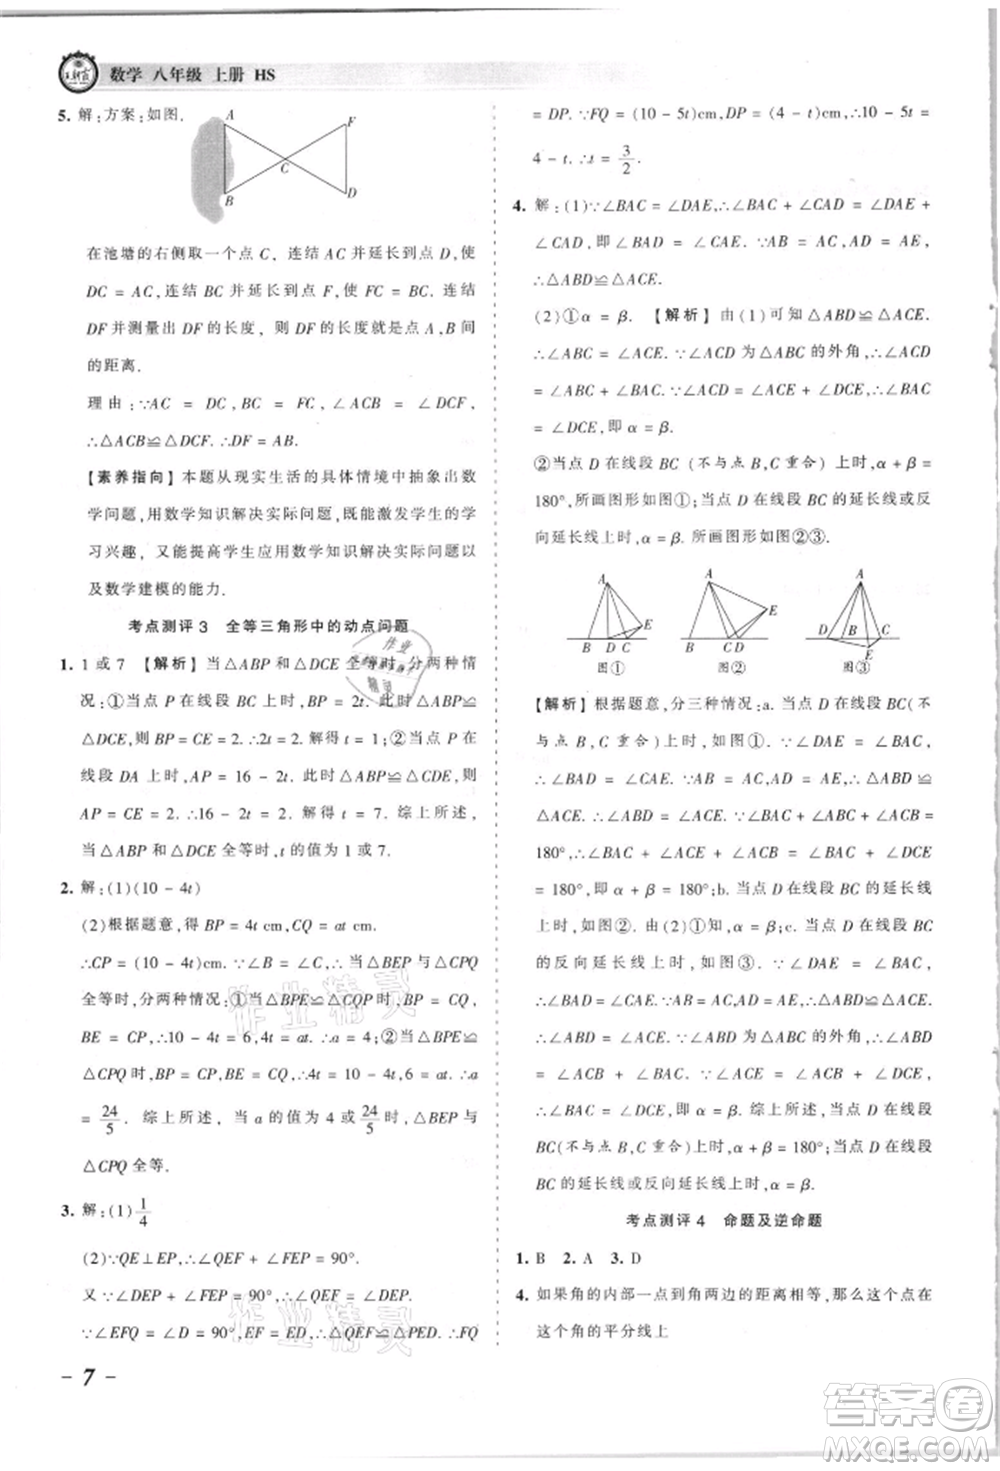 王朝霞
数学 八年级 上册 HS
5. 解:方案:如图.
A
F
C
B
D
在池塘的右侧取一个点 C, 连结 AC 并延长到点 D, 使
DC = AC, 连结 BC 并延长到点 F, 使 FC = BC, 连结
DF 并测量出 DF 的长度, 则 DF 的长度就是点 A,B 间
的距离.
理由:∵AC = DC,BC = FC,∠ACB = ∠DCF,
∴△ACB≌△DCF. ∴DF = AB.
【素养指向】本题从现实生活的具体情境中抽象出数
学问题,用数学知识解决实际问题,既能激发学生的学
习兴趣, 又能提高学生应用数学知识解决实际问题以
及数学建模的能力.
考点测评 3 全等三角形中的动点问题
1. 1 或 7 【解析】当△ABP 和△DCE 全等时,分两种情
况:①当点 P 在线段 BC 上时, BP = 2t. 此时△ABP≌
△DCE,则 BP = CE = 2. ∴2t = 2. 解得 t = 1;②当点 P 在
线段 DA 上时, AP = 16 - 2t. 此时△ABP≌△CDE,则
AP = CE = 2. ∴16 - 2t = 2. 解得 t = 7. 综上所述,
当△ABP 和△DCE 全等时,t 的值为 1 或 7.
2. 解:(1)(10 - 4t)
(2)根据题意,得 BP = 4t cm,CQ = at cm.
∴CP = (10 - 4t)cm. ∵∠B = ∠C,∴当△BPE 与△CPQ
全等时,分两种情况:①当△BPE≌△CQP 时,BP = CQ,
BE = CP. ∴4t = at. 解得 a = 4;②当△BPE≌
△CPQ 时,BP = CP,BE = CQ. ∴4t = 10 - 4t,6 = at. ∴a
= 24/5. 综上所述, 当 a 的值为 4 或 24/5 时,△BEP 与
△CPQ 全等.
3. 解:(1) 1/4
(2)∵QE⊥EP,∴∠QEF + ∠FEP = 90°.
又 ∵∠DEP + ∠FEP = 90°,∴∠QEF = ∠DEP.
∵∠EFQ = ∠D = 90°,EF = ED,∴△EFQ≌△PED. ∴FQ
= DP. ∵FQ = (10 - 5t)cm,DP = (4 - t)cm,∴10 - 5t =
4 - t. ∴t = 3/2.
4. 解:(1)∵∠BAC = ∠DAE,∴∠BAC + ∠CAD = ∠DAE +
∠CAD,即∠BAD = ∠CAE. ∵AB = AC,AD = AE,
∴△ABD≌△ACE.
(2)①α = β. 【解析】由(1)可知△ABD≌△ACE.
∴∠ABC = ∠ACE. ∵∠ACD 为△ABC 的外角,∴∠ACD
= ∠BAC + ∠ABC = ∠ACE + ∠DCE,∴∠BAC
= ∠DCE,即 α = β.
②当点 D 在线段 BC (不与点 B,C 重合) 上时,α + β =
180°,所画图形如图①;当点 D 在线段 BC 的延长线或反
向延长线上时,α = β. 所画图形如图②③.
A
E
B D C
图①
A
E
B C D
图②
A
D B C
E
图③
【解析】根据题意,分三种情况:a. 当点 D 在线段 BC(不
与点 B,C 重合)上时,如图①. ∵∠DAE = ∠BAC,
∴∠BAD = ∠CAE. ∵AB = AC,AD = AE,∴△ABD≌
△ACE. ∴∠ABC = ∠ACE. ∵∠BAC + ∠ABC + ∠ACB =
180°,∴∠BAC + ∠ACE + ∠ACB = ∠BAC + ∠BCE
= 180°,即 α + β = 180°;b. 当点 D 在线段 BC 的延长线
上时,如图②. 由(2)①知,α = β;c. 当点 D 在线段 BC
的反向延长线上时,如图③. ∵∠DAE = ∠BAC,
∴∠DAB = ∠EAC. ∵AD = AE,AB = AC,∴△ADB≌△AEC.
∴∠ABD = ∠ACE. ∵∠ABD 是△ABC 的外角,∴∠ABD
= ∠ACB + ∠BAC. ∵∠ACE = ∠ACB + ∠DCE,
∴∠BAC = ∠DCE,即 α = β. 综上所述,当点 D 在线段
BC(不与点 B,C 重合)上时,α + β = 180°;当点 D 在线段
BC 的延长线或反向延长线上时,α = β.
考点测评 4 命题及逆命题
1. B 2. A 3. D
4. 如果角的内部一点到角两边的距离相等,那么这个点在
这个角的平分线上
- 7 -
作业精灵
作业精灵
答案圈
MXQE.COM